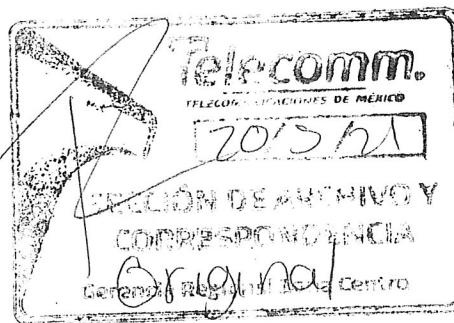 Telecomm.
TELECOMUNICACIONES DE MÉXICO
20/5/21
SECCIÓN DE ARCHIVO Y
CORRESPONDENCIA
Original
Gerencia Regional Centro